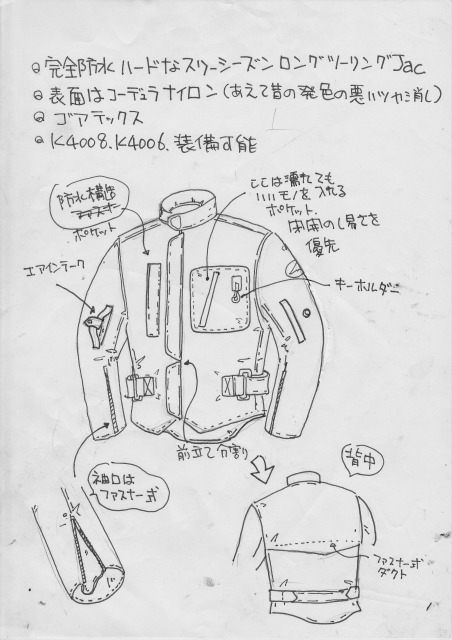 完全防水ハードなスリーシーズンロングツーリングJac
表面はコーデュラナイロン(あえて昔の発色の悪いツヤ消し)
ゴアテックス
K4008.K4006.装備可能
防水構造
ファスナー
ポケット
ここは濡れても
いいモノを入れる
ポケット.
開閉のし易さを
優先
エアインテーク
キーホルダー
前立て分割り
袖口は
ファスナー式
背中
ファスナー式
ダクト